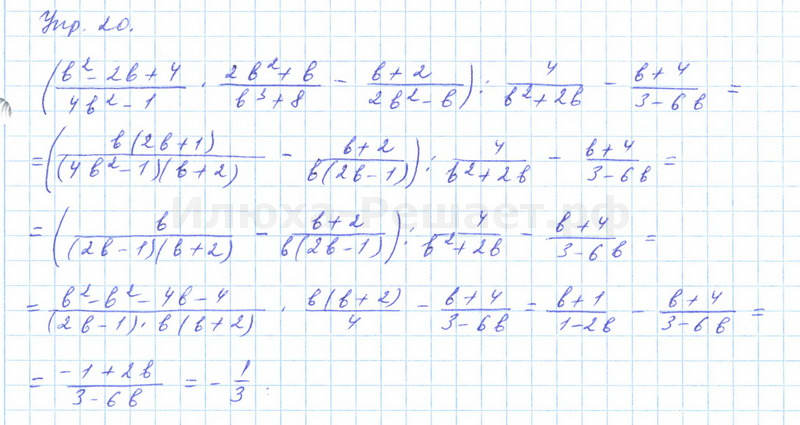 Упр. 20.
((b² - 2b + 4)/(4b² - 1) · (2b² + b)/(b³ + 8) - (b + 2)/(2b² - b)) : 4/(b² + 2b) - (b + 4)/(3 - 6b) =
= (b(2b + 1)/((4b² - 1)(b + 2)) - (b + 2)/(b(2b - 1))) : 4/(b² + 2b) - (b + 4)/(3 - 6b) =
= (b/((2b - 1)(b + 2)) - (b + 2)/(b(2b - 1))) : 4/(b² + 2b) - (b + 4)/(3 - 6b) =
Илюха-Решает.рф
= (b² - b² - 4b - 4)/((2b - 1) · b(b + 2)) · b(b + 2)/4 - (b + 4)/(3 - 6b) = (b + 1)/(1 - 2b) - (b + 4)/(3 - 6b) =
= (-1 + 2b)/(3 - 6b) = - 1/3.